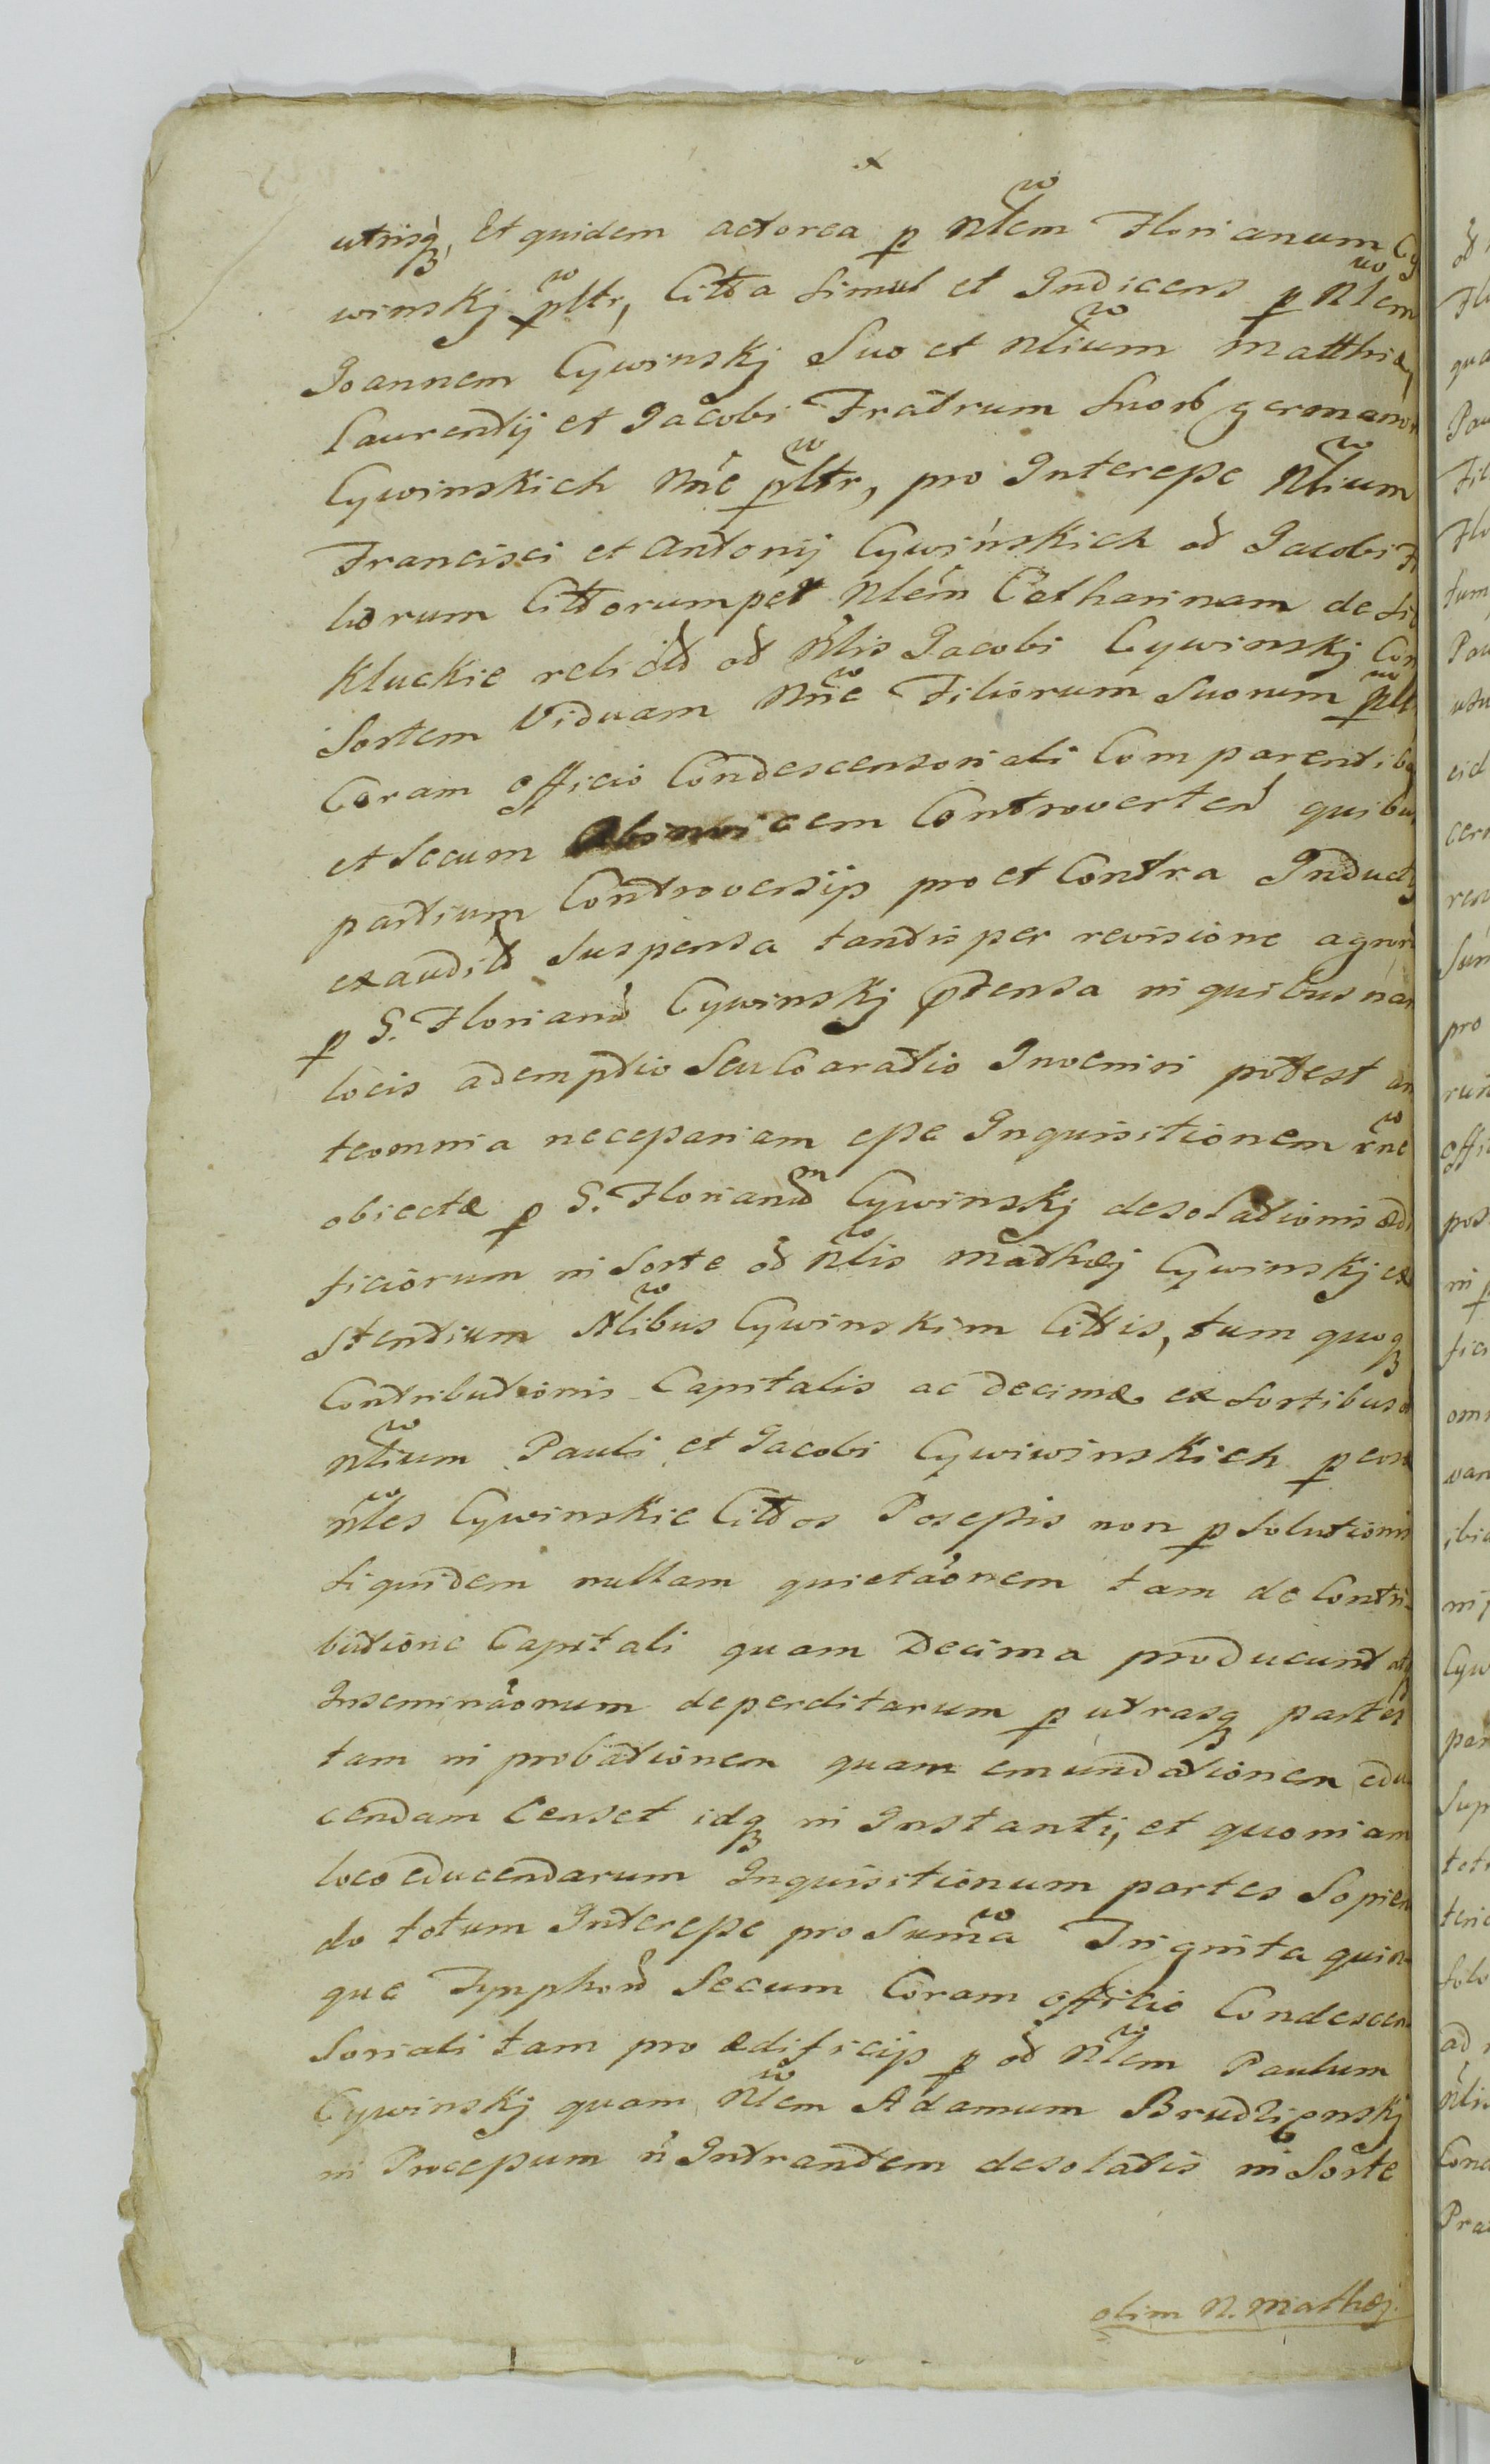 utrisq, Et quidem actorea p Nlem Florianum Cy
winskj pltr, Citta simul et Indicens p Nlem
Joannem Cywinskj Suo et Nlium Matthiæ,
Laurentij et Jacobi Fratrum Suorb germanor
Cywinskich Nne pltr, pro Interesse Nlium
Francisci et Antonij Cywińskich od Jacobi Fi
liorum Cittorum per Nlem Catharinam de
Kluckie relictd od Nlis Jacobi Cywinskj Con
sortem Viduam Nne Filiorum Suorum plt
Coram officio Condescensoriali Comparentibg
et Secum Abinvicem Controverten quibus
partium Controversijs pro et Contra Inductis
exauditd Suspensa tantisper revisione agrorum
p S. Florianu Cywinskj ptensa in quibus nam
locis ademptio Seu Coaratio Inveniri potest an
teomnia necessariam esse Inquisitionem rne
obiectæ p S. Florianum Cywinskj desolationis ædi
ficiorum in Sorte od Nlis Mathæj Cywinskj ex
stentium Nlibus Cywinskim Cittis, tum quoq
Contributionis Capitalis ac Decimæ ex Sortibus
Nlium Pauli et Jacobi Cywiwinskich p eos
Nles Cywinskie Cittos Possessis non p Solutionis
Siquidem nullam quietaonem tam de Contri-
butione Capitali quam Decima producunt atq
Inseminaonum deperditarum p utrasq partes
tam in probationem quam emundationem edu
cendam Censet idq in Instanti, et quoniam
loco educendarum Inquisitionum partes Sopien
do totum Interesse pro Suma Triginta quin-
que Tynphon Secum Coram officio Condescen
soriali tam pro ædificijs p od Nlem Paulum
Cywinskj quam Nlem Adamum Brudzienskj
in Processum n Intrantem desolatis in Sorte
olim N. Mathæj